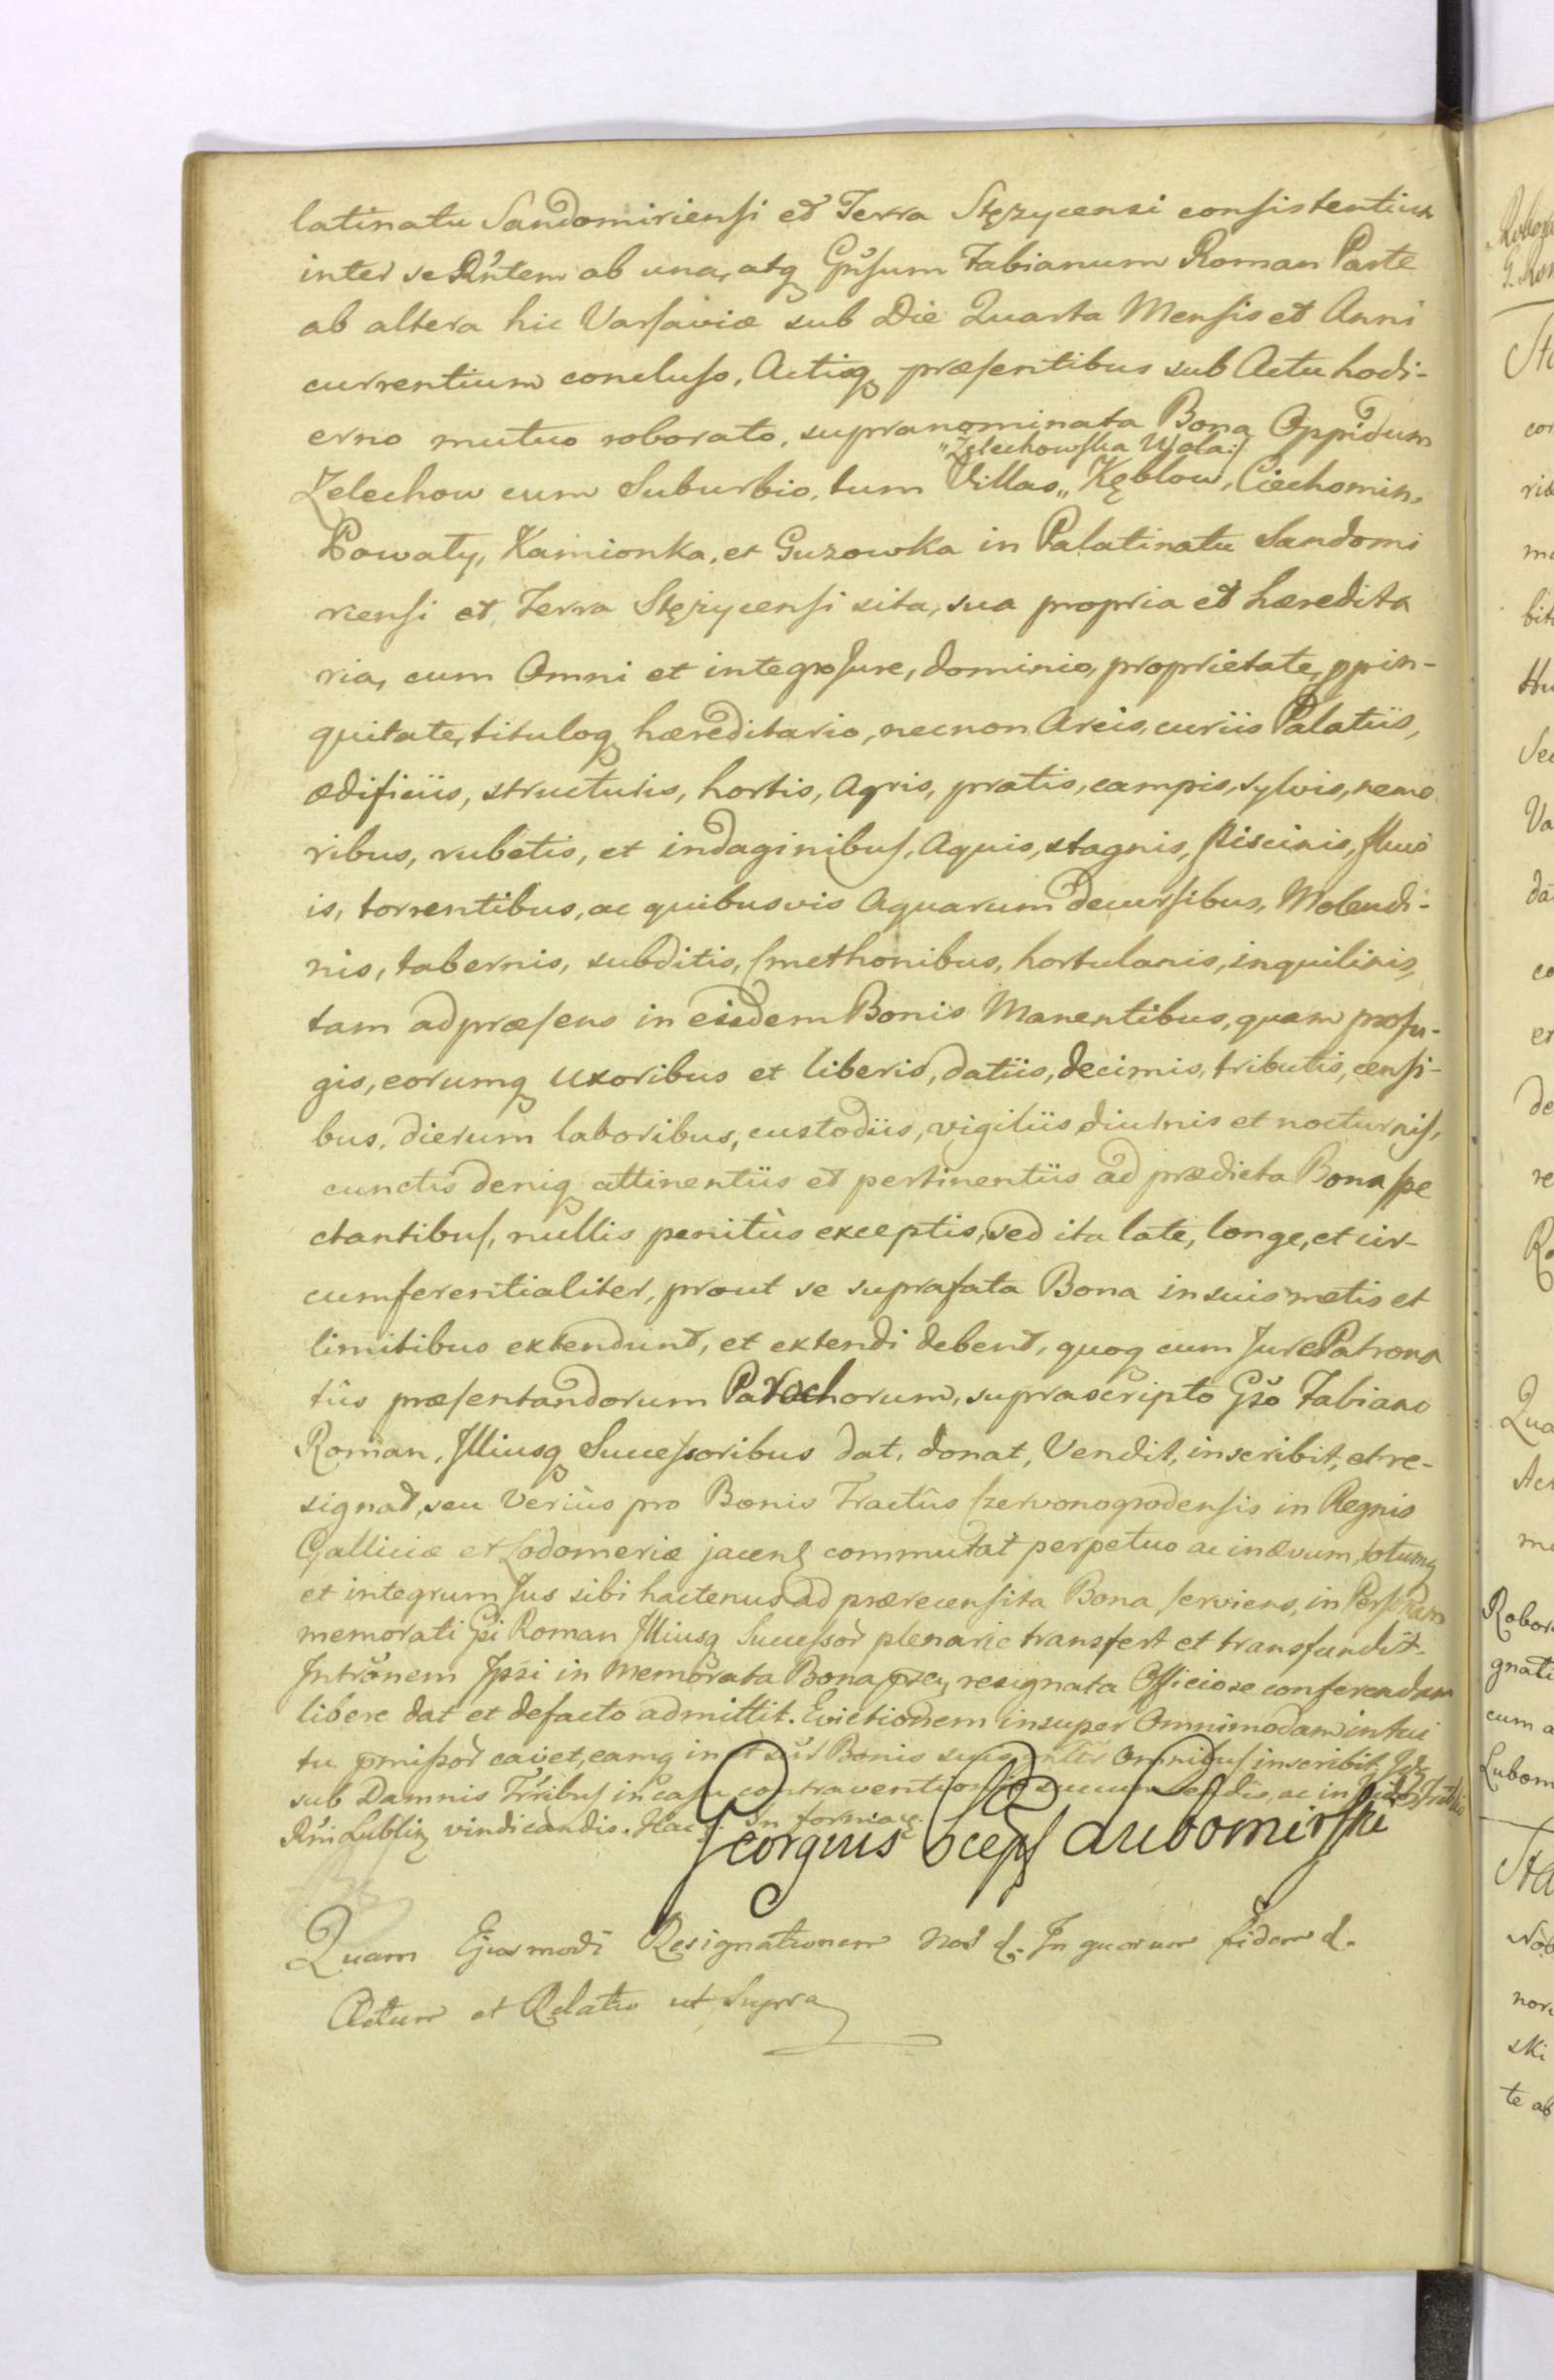 latinatu Sandomiriensi et Terra Stęzycensi consistentium
inter se Rñtem ab una, atq Gnŝum Fabianum Roman Parte
ab altera hic Varsaviæ sub Die Quarta Mensis et Anni
currentium concluso, Actisq præsentibus sub Actu hodi-
erno mutuo roborato, supranominata Bona Oppidum
"Zelechowska Wola:/
Zelechow cum Suburbio, tum Villas,, Kęblow, Ciechomin,
Łowaty, Kamionka, et Guzowka in Palatinatu Sandomi
riensi et Terra Stężycensi sita, sua propria et hæredita
ria, cum Omni et integro Jure, dominio, proprietate, ppin-
quitate, tituloq hæreditario, necnon Arcis, curiis Palatiis,
ædificiis, structuris, hortis, Agris, pratis, campis, sylvis, nemo
ribus, rubetis, et indaginibus, Aquis, stagnis, Piscinis, fluvi
is, torrentibus, ac quibusvis Aquarum decursibus, Molendi-
nis, tabernis, subditis, Cmethonibus, hortulanis, inquilinis,
tam ad præsens in eisdem Bonis Manentibus, quam profu-
gis, eorumq Uxoribus et liberis, datiis, decimis, tributis, censi-
bus, dierum laboribus, custodiis, vigiliis diurnis et nocturnis,
cunctis deniq attinentiis et pertinentiis ad prædicta Bona spe
ctantibus, nullis penitùs exceptis, sed ita late, longe, et cir-
cumferentialiter, prout se suprafata Bona in suis metis et
limitibus extendunt, et extendi debent, quoq cum Jure Patrona
tûs præsentandorum Parochorum, suprascripto Gŝo Fabiano
Roman, Illiusq Successoribus dat, donat, Vendit, inscribit, et re-
signat, seu Veriùs pro Bonis Tractûs Czervonogrodensis in Regnis
Galliciæ et Lodomeriæ jacenȩ commutat perpetuo ac in ævum, totumq
et integrum Jus sibi hactenus ad prærecensita Bona serviens, in Personam
memorati Gŝi Roman Illiusq Successor plenarie transfert et transfundit.
Intrõnem Ipsi in Memorata Bona resignata Officiose conferendam
libere dat et defacto admittit. Evictionem insuper Omnimodam intui
tu pmissor cavet, eamq in Bonis suis Omnibus inscribit
sub Damnis Tr̃ibus in casu contraventionis, ac in
Rñi Lublin vindicandis. Hac In forma
Georgius Lubomirski
Quam Ejusmodi Resignationem Nos &. In quorum fidem &.
Actum et Relatio ut Supra